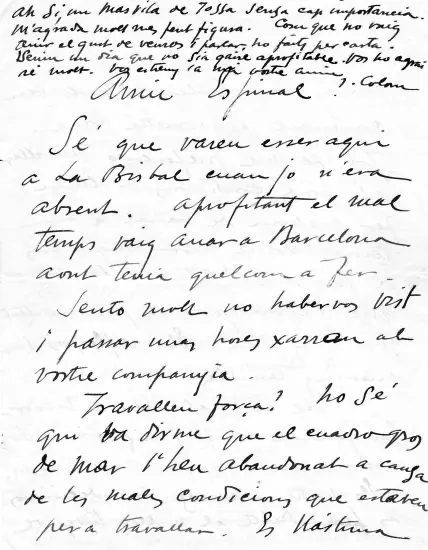 ah Si; un mas vila de Tossa sensa cap importancia.
M'agrada molt mes fent figura. Com que no vaig
tenir el gust de veureus i parlar, ho faig per carta.
Venim un dia que no sia gaire aprofitable. Vos ho agrai
ré molt. Vos estreny la mà vostre amic
Amic Espinal! J. Colom
Sé que vareu esser aqui
a La Bisbal cuan jo n'era
absent. Aprofitant el mal
temps vaig anar a Barcelona
aont tenia quelcom a fer.
Sento molt no habervos vist
i passar unas hores xarran ab
vostre companyia.
Travalleu força? No sé
qui va dirme que el cuadro gros
de mar l'heu abandonat a causa
de les males condicions que estaveu
per a travallar. Es llástima